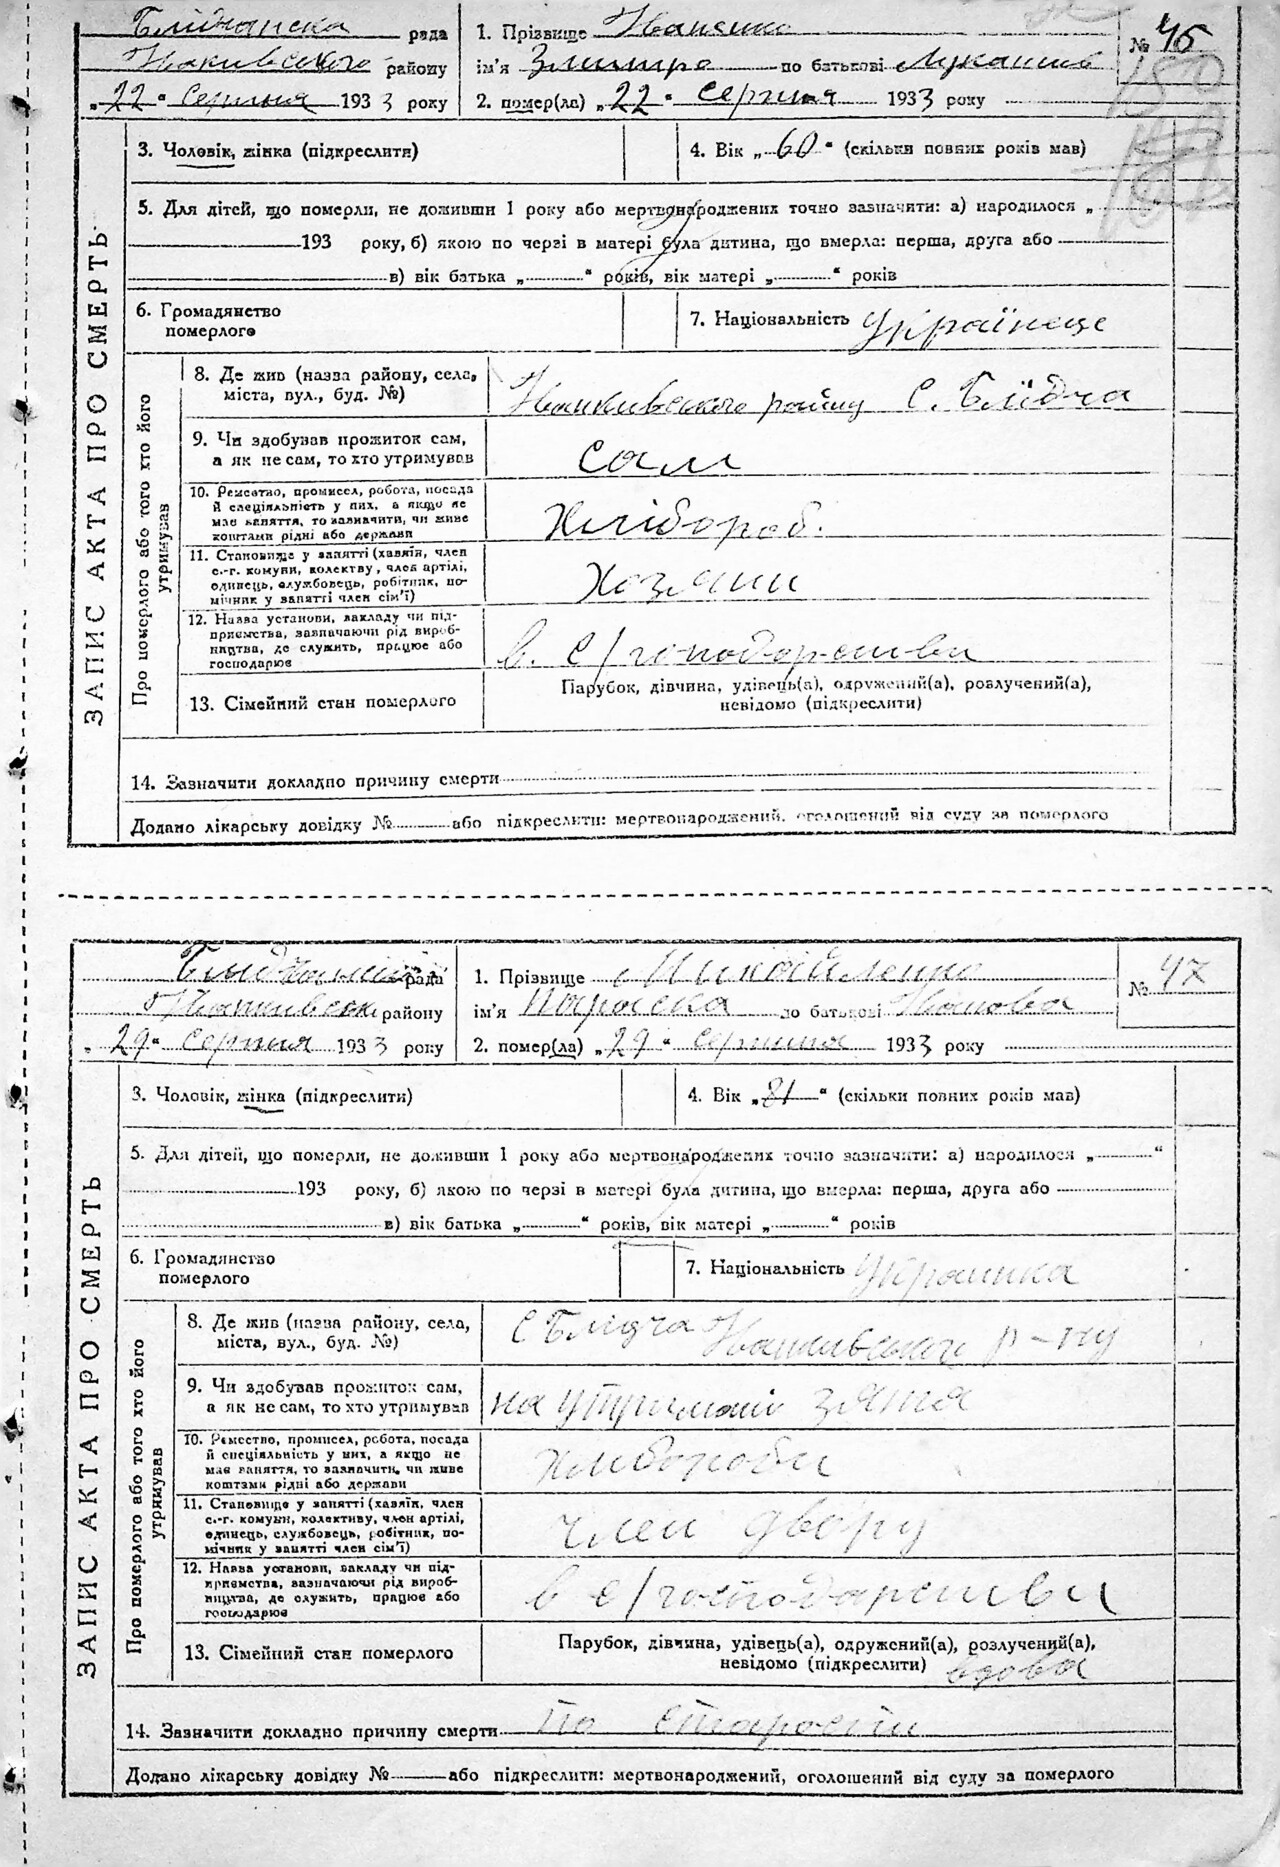 рада
району
„22“ серпня 1933 року
1. Прізвище Іваненко
ім'я по батькові
2. помер(ла) „22“ серпня 1933 року
№ 45
ЗАПИС АКТА ПРО СМЕРТЬ
3. Чоловік, жінка (підкреслити)
4. Вік „60“ (скільки повних років мав)
5. Для дітей, що померли, не доживши 1 року або мертвонароджених точно зазначити: а) народилося „
193 року, б) якою по черзі в матері була дитина, що вмерла: перша, друга або
в) вік батька „ “ років, вік матері „ “ років
6. Громадянство
померлого
7. Національність Українець
Про померлого або того хто його
утримував
8. Де жив (назва району, села,
міста, вул., буд. №)
району С. Блідча
9. Чи здобував прожиток сам,
а як не сам, то хто утримував
сам
10. Ремество, промисел, робота, посада
й спеціяльність у них, а якщо не
має заняття, то зазначити, чи живе
коштами рідні або держави
Хлібороб.
11. Становище у занятті (хазяїн, член
с.-г. комуни, колективу, член артілі,
одинець, службовець, робітник, по-
мічник у занятті член сім'ї)
Хозяин
12. Назва установи, закладу чи під-
приємства, зазначаючи рід вироб-
ництва, де служить, працює або
господарює
в. с/господарстви
13. Сімейний стан померлого
Парубок, дівчина, удівець(а), одружений(а), розлучений(а),
невідомо (підкреслити)
14. Зазначити докладно причину смерти
Додано лікарську довідку № або підкреслити: мертвонароджений, оголошений від суду за померлого
рада
району
„29“ серпня 1933 року
1. Прізвище Михайленко
ім'я Параска по батькові Іванова
2. помер(ла) „29“ серпня 1933 року
№ 47
ЗАПИС АКТА ПРО СМЕРТЬ
3. Чоловік, жінка (підкреслити)
4. Вік „81“ (скільки повних років мав)
5. Для дітей, що померли, не доживши 1 року або мертвонароджених точно зазначити: а) народилося „ “
193 року, б) якою по черзі в матері була дитина, що вмерла: перша, друга або
в) вік батька „ “ років, вік матері „ “ років
6. Громадянство
померлого
7. Національність Украинка
Про померлого або того хто його
утримував
8. Де жив (назва району, села,
міста, вул., буд. №)
С Блидча Іванкивського р-ну
9. Чи здобував прожиток сам,
а як не сам, то хто утримував
на утриманні зятя
10. Ремество, промисел, робота, посада
й спеціяльність у них, а якщо не
має заняття, то зазначити, чи живе
коштами рідні або держави
11. Становище у занятті (хазяїн, член
с.-г. комуни, колективу, член артілі,
одинець, службовець, робітник, по-
мічник у занятті член сім'ї)
член двору
12. Назва установи, закладу чи під-
приємства, зазначаючи рід вироб-
ництва, де служить, працює або
господарює
в с/господарстви
13. Сімейний стан померлого
Парубок, дівчина, удівець(а), одружений(а), розлучений(а),
невідомо (підкреслити) вдова
14. Зазначити докладно причину смерти по старости
Додано лікарську довідку № або підкреслити: мертвонароджений, оголошений від суду за померлого